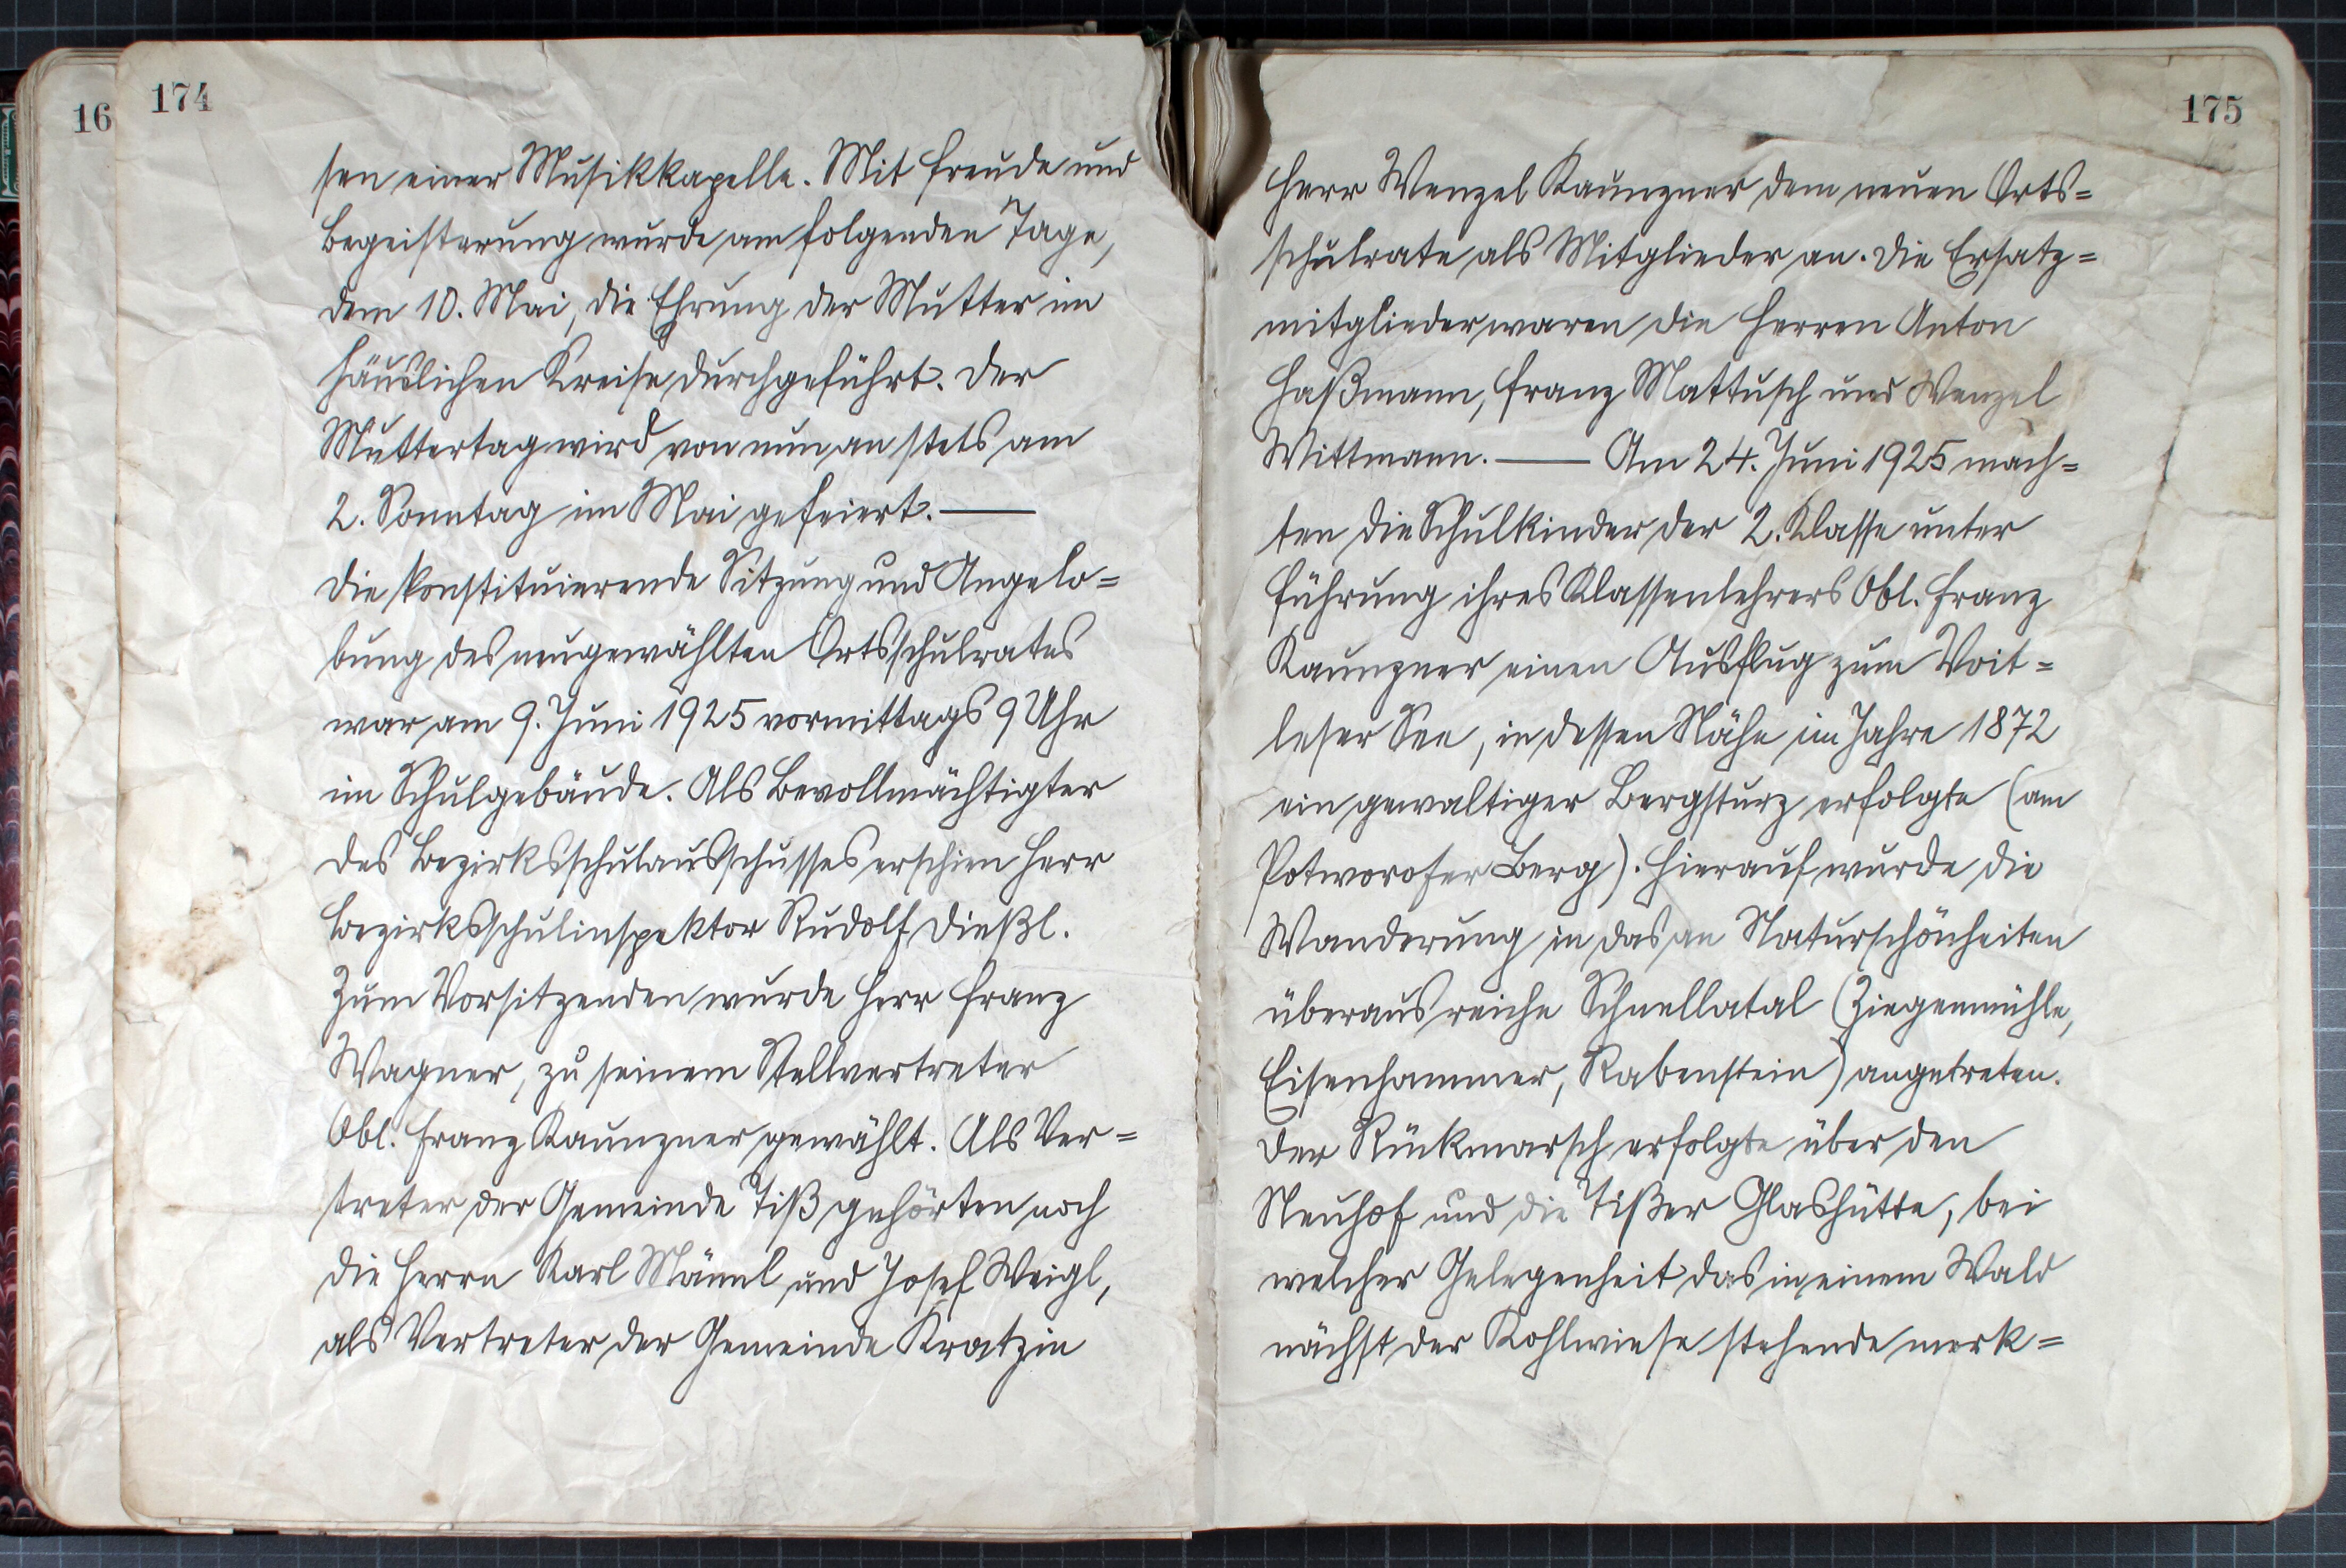 16
174
sen einer Musikkapelle. Mit Freude und
Begeisterung wurde am folgenden Tage,
dem 10. Mai, die Ehrung der Mutter im
häuslichen Kreise durchgeführt. Der
Muttertag wird von nun an stets am
2. Sonntag im Mai gefeiert. ——
Die konstituierende Sitzung und Angelo=
bung des neugewählten Ortsschulrates
war am 9. Juni 1925 vormittags 9 Uhr
im Schulgebäude. Als Bevollmächtigter
des Bezirksschulausschusses erschien Herr
Bezirksschulinspektor Rudolf Dießl.
Zum Vorsitzenden wurde Herr Franz
Wagner, zu seinem Stellvertreter
Obl. Franz Kaunzner gewählt. Als Ver=
treter der Gemeinde Tiß gehörten noch
die Herrn Karl Männl und Josef Weigl,
als Vertreter der Gemeinde Kratzin
175
Herr Wenzel Kaunzner dem neuen Orts=
schulrate als Mitglieder an. Die Ersatz=
mitglieder waren die Herren Anton
Haßmann, Franz Mattusch und Wenzel
Wittmann. —— Am 24. Juni 1925 mach=
ten die Schulkinder der 2. Klasse unter
Führung ihres Klassenlehrers Obl. Franz
Kaunzner einen Ausflug zum Woit=
leser See, in dessen Nähe im Jahre 1872
ein gewaltiger Bergsturz erfolgte (am
Potworofer Berg). Hierauf wurde die
Wanderung in das an Naturschönheiten
überaus reiche Schnellatal (Ziegenmühle,
Eisenhammer, Rabenstein) angetreten.
Der Rückmarsch erfolgte über den
Neuhof und die Tißer Glashütte, bei
welcher Gelegenheit das in einem Wald
nächst der Kohlwiese stehende merk=